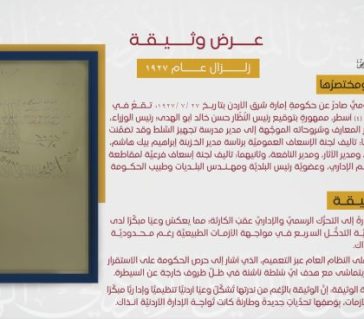 عرض وثيقة
زلزال عام ١٩٢٧
ومختصرها
صادر عن حكومة إمارة شرق الأردن بتاريخ ٢٧ / ٧ / ١٩٢٧، تقع في
(٤) أسطر، ممهورة بتوقيع رئيس النُظّار حسن خالد أبو الهدى؛ رئيس الوزراء،
المعارف وشروحاته الموجّهة إلى مدير مدرسة تجهيز السلط وقد تضمّنت
تأليف لجنة الإسعاف العمومية برئاسة مدير الخزينة إبراهيم بيك هاشم،
ومدير الآثار، ومدير النافعة، وثانيهما: تأليف لجنة إسعاف فرعية لمقاطعة
الإداري، وعضوية رئيس البلدية ومهندس البلديات وطبيب الحكومة
إلى التحرّك الرسمي والإداري عقب الكارثة، مما يعكس وعيًا مبكرًا لدى
التدخّل السريع في مواجهة الأزمات الطبيعية رغم محدودية
النظام العام عبر التعميم، الذي أشار إلى حرص الحكومة على الاستقرار
يتماشى مع هدف أيّ سلطة ناشئة في ظلّ ظروف خارجة عن السيطرة.
الوثيقة، إنّ الوثيقة بالرّغم من ندرتها تُشكّل وعيًا أردنيًا تنظيميًا وإداريًا مبكرًا
بوصفها تحدّيات جديدة وطارئة كانت تُواجه الإدارة الأردنية آنذاك.